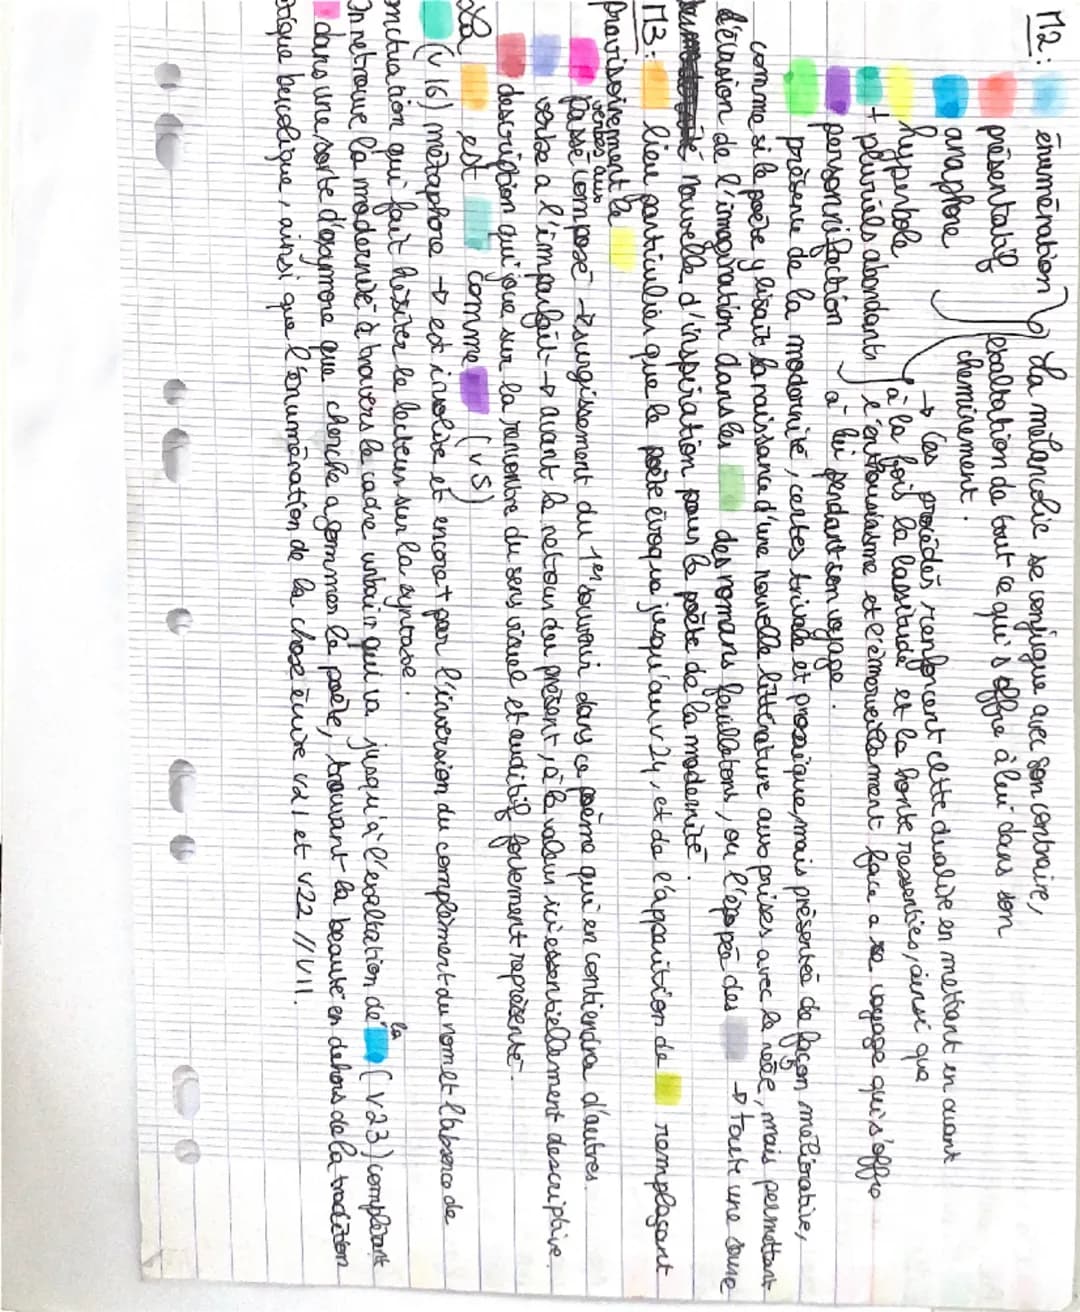 M2: énumération } La mélancolie se conjugue avec son contraire,
présentatif l'exaltation de tout ce qui s'offre à lui dans son
anaphore cheminement.
hyperbole → Ces procédés renforcent cette dualité en mettant en avant
+ pluriels abondants à la fois la lassitude et la honte ressenties, ainsi que
personnification l'enthousiasme et l'émerveillement face a voyage qui s'offre
à lui pendant son voyage.
présence de la modernité, certes triviale et prosaïque, mais présentée de façon méliorative,
comme si le poète y lisait la naissance d'une nouvelle littérature aux prises avec le réel, mais permettant
l'évasion de l'imagination dans les des romans feuilletons, ou l'épopée des → Toute une
nouvelle d'inspiration pour le poète de la modernité.
M3: lieu particulier que le poète évoque jusqu'au v 24, et de l'apparition de remplaçant
provisoirement le
verbes aux
passé composé → surgissement du 1er souvenir dans ce poème qui en contiendra d'autres.
verbe a l'imparfait → avant le retour du présent, à la valeur ici essentiellement descriptive.
description qui joue sur la rencontre du sens visuel et auditif fortement représenté.
La est comme (v 5)
(v 16) métaphore → est inusité et encore + par l'inversion du complément du nom et l'absence de
ponctuation qui fait hésiter le lecteur sur la syntaxe.
On retrouve la modernité à travers le cadre urbain qui va jusqu'à l'exaltation de la (v 23) complétant
dans une sorte d'oxymore que cherche a gommer le poète, trouvant la beauté en dehors de la tradition
bucolique, ainsi que l'énumération de la chose écrite v21 et v22 // v11.